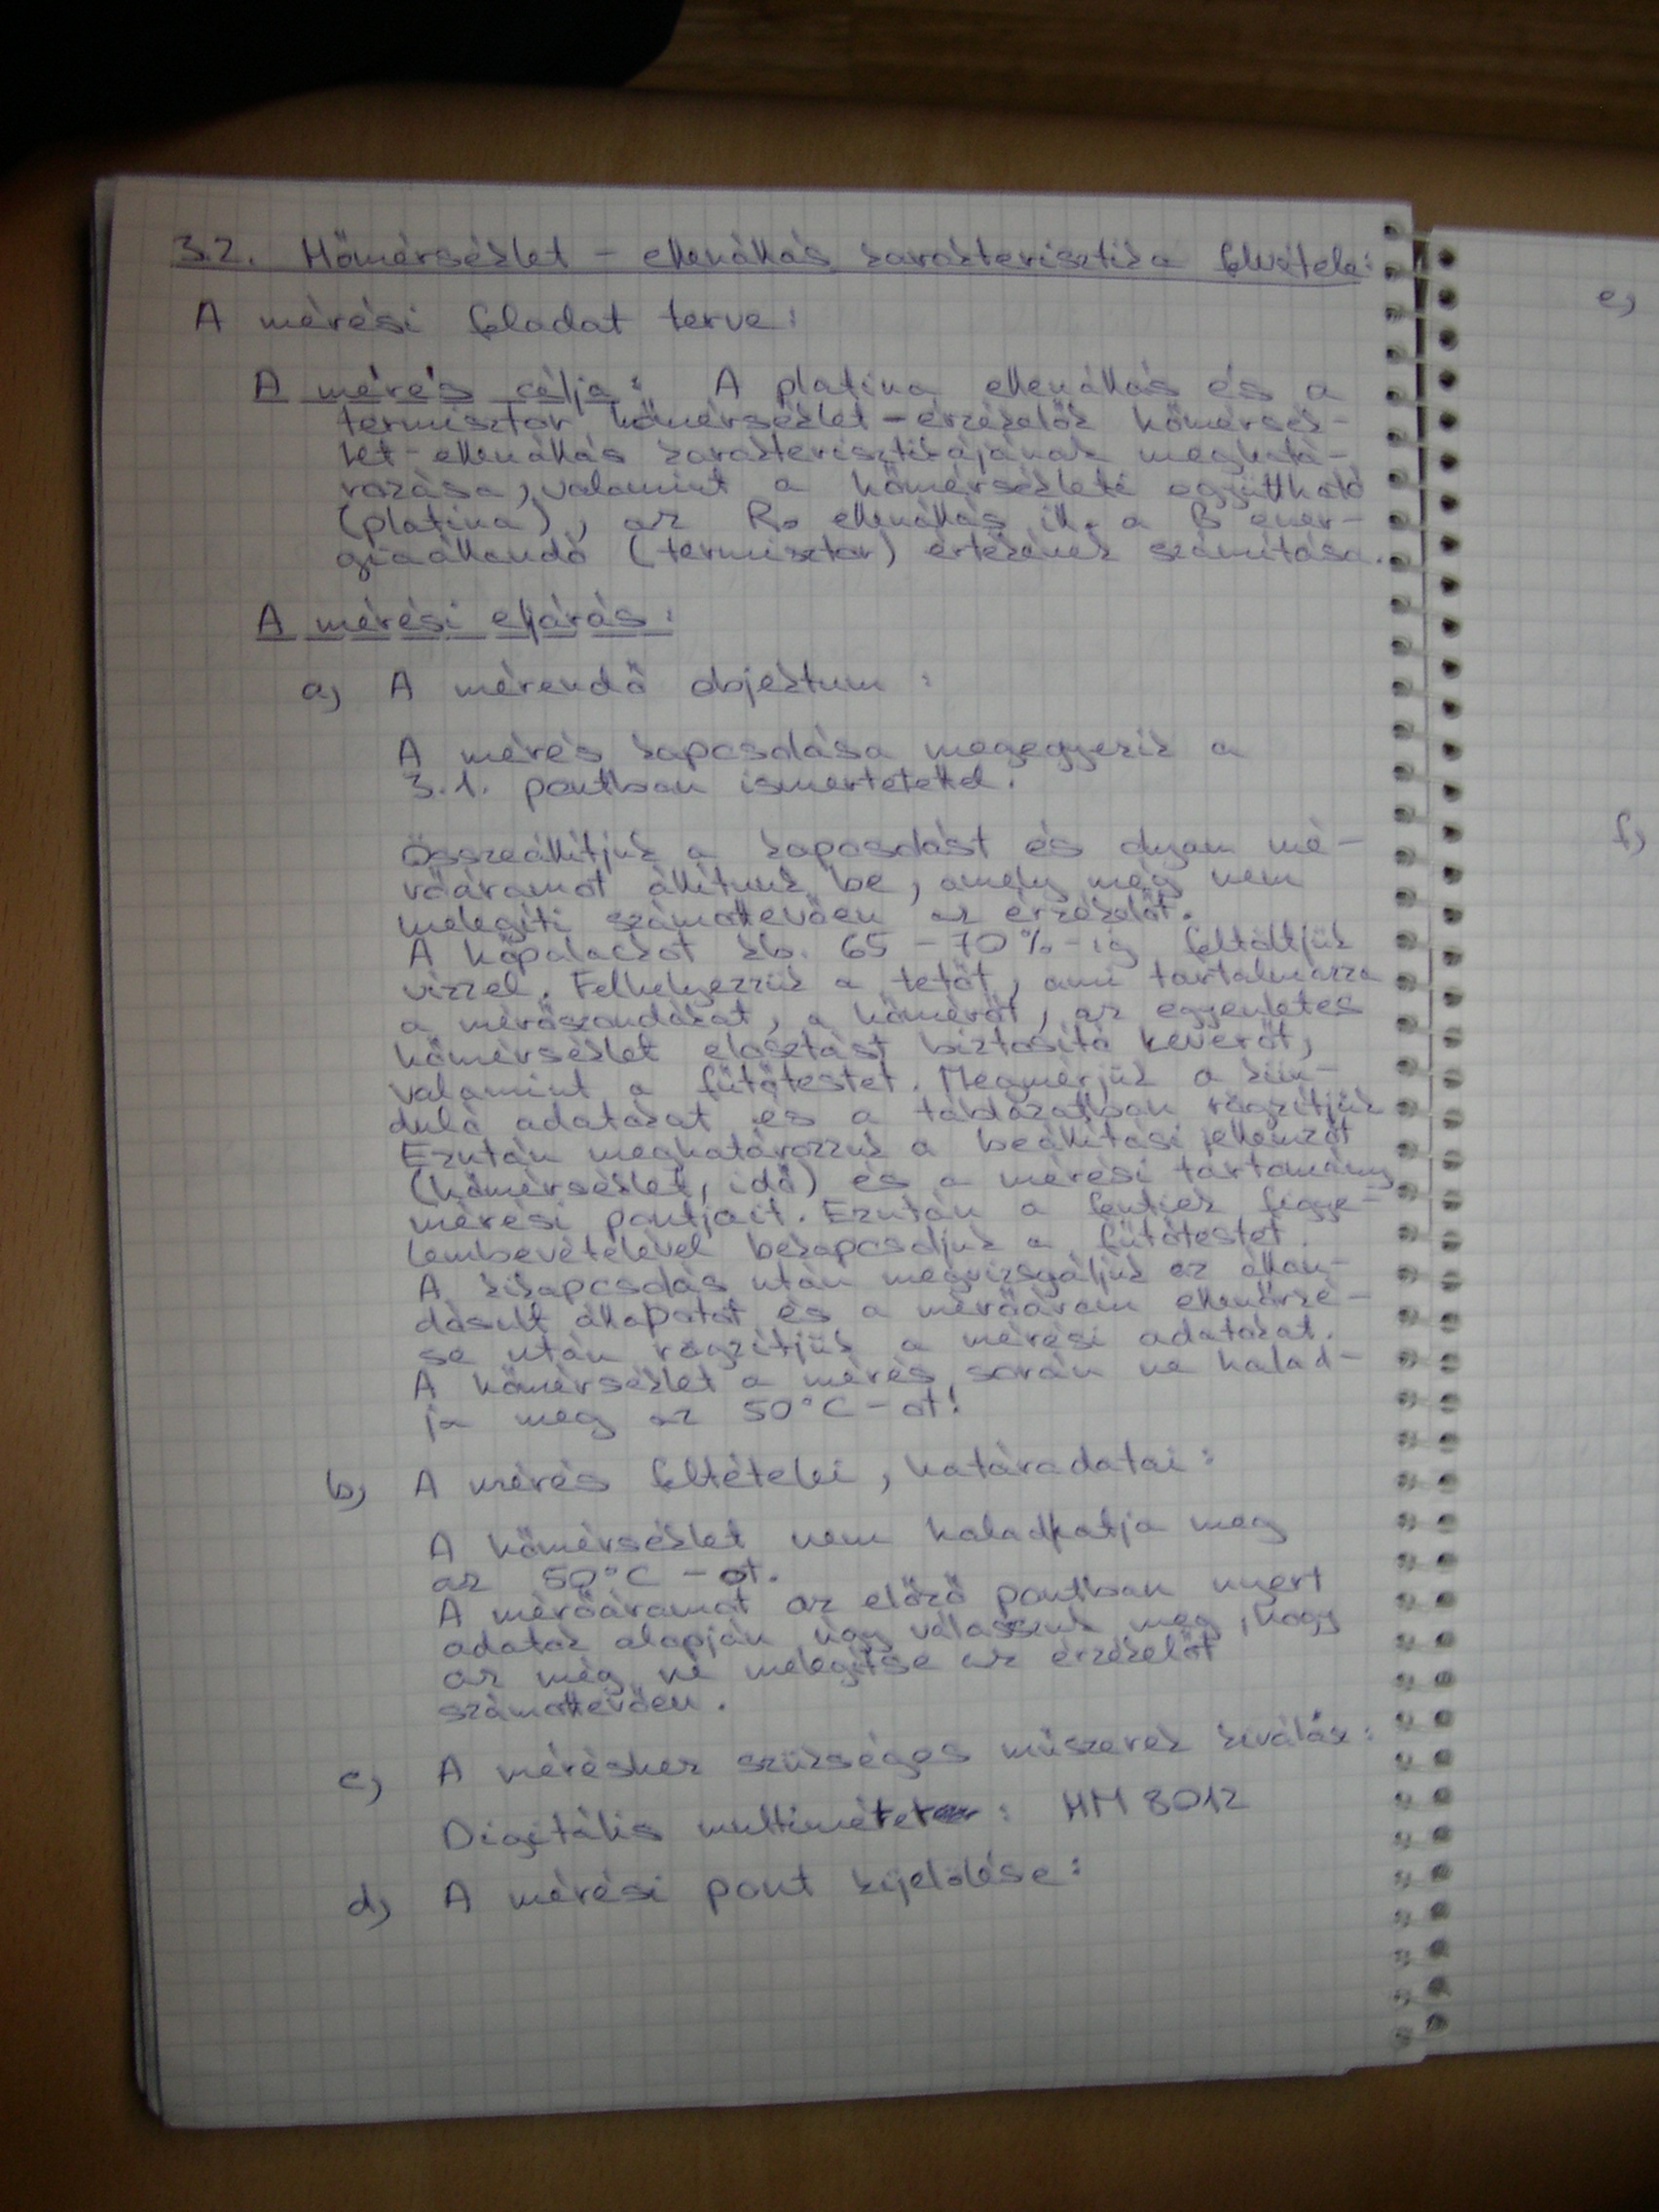 3.2. Hőmérséklet - ellenállás karakterisztika felvétele:
A mérési feladat terve:
A mérés célja: A platina ellenállás és a
termisztor hőmérséklet-érzékelők hőmérsék-
let-ellenállás karakterisztikájának meghatá-
rozása, valamint a hőmérsékleti együttható
(platina), az R₀ ellenállás ill. a B ener-
giaállandó (termisztor) értékének számítása.
A mérési eljárás:
a) A mérendő objektum:
A mérés kapcsolása megegyezik a
3.1. pontban ismertetettel.
Összeállítjuk a kapcsolást és olyan mé-
rőáramot állítunk be, amely még nem
melegíti számottevően az érzékelőt.
A hőpalackot kb. 65 - 70%-ig feltöltjük
vízzel. Felhelyezzük a tetőt, ami tartalmazza
a mérőszondákat, a hőmérőt, az egyenletes
hőmérséklet elosztást biztosító keverőt,
valamint a fűtőtestet. Megmérjük a kiin-
duló adatokat és a táblázatban rögzítjük
Ezután meghatározzuk a beállítási jellemzőt
(hőmérséklet, idő) és a mérési tartomány
mérési pontjait. Ezután a fentiek figye-
lembevételével bekapcsoljuk a fűtőtestet.
A kikapcsolás után megvizsgáljuk az állan-
dósult állapotot és a mérőáram ellenőrzé-
se után rögzítjük a mérési adatokat.
A hőmérséklet a mérés során ne halad-
ja meg az 50°C-ot!
b) A mérés feltételei, határadatai:
A hőmérséklet nem haladhatja meg
az 50°C-ot.
A mérőáramot az előző pontban nyert
adatok alapján úgy válasszuk meg, hogy
az még ne melegítse az érzékelőt
számottevően.
c) A méréshez szükséges műszerek kiválás:
Digitális multiméter: HM 8012
d) A mérési pont kijelölése:
e)
f)